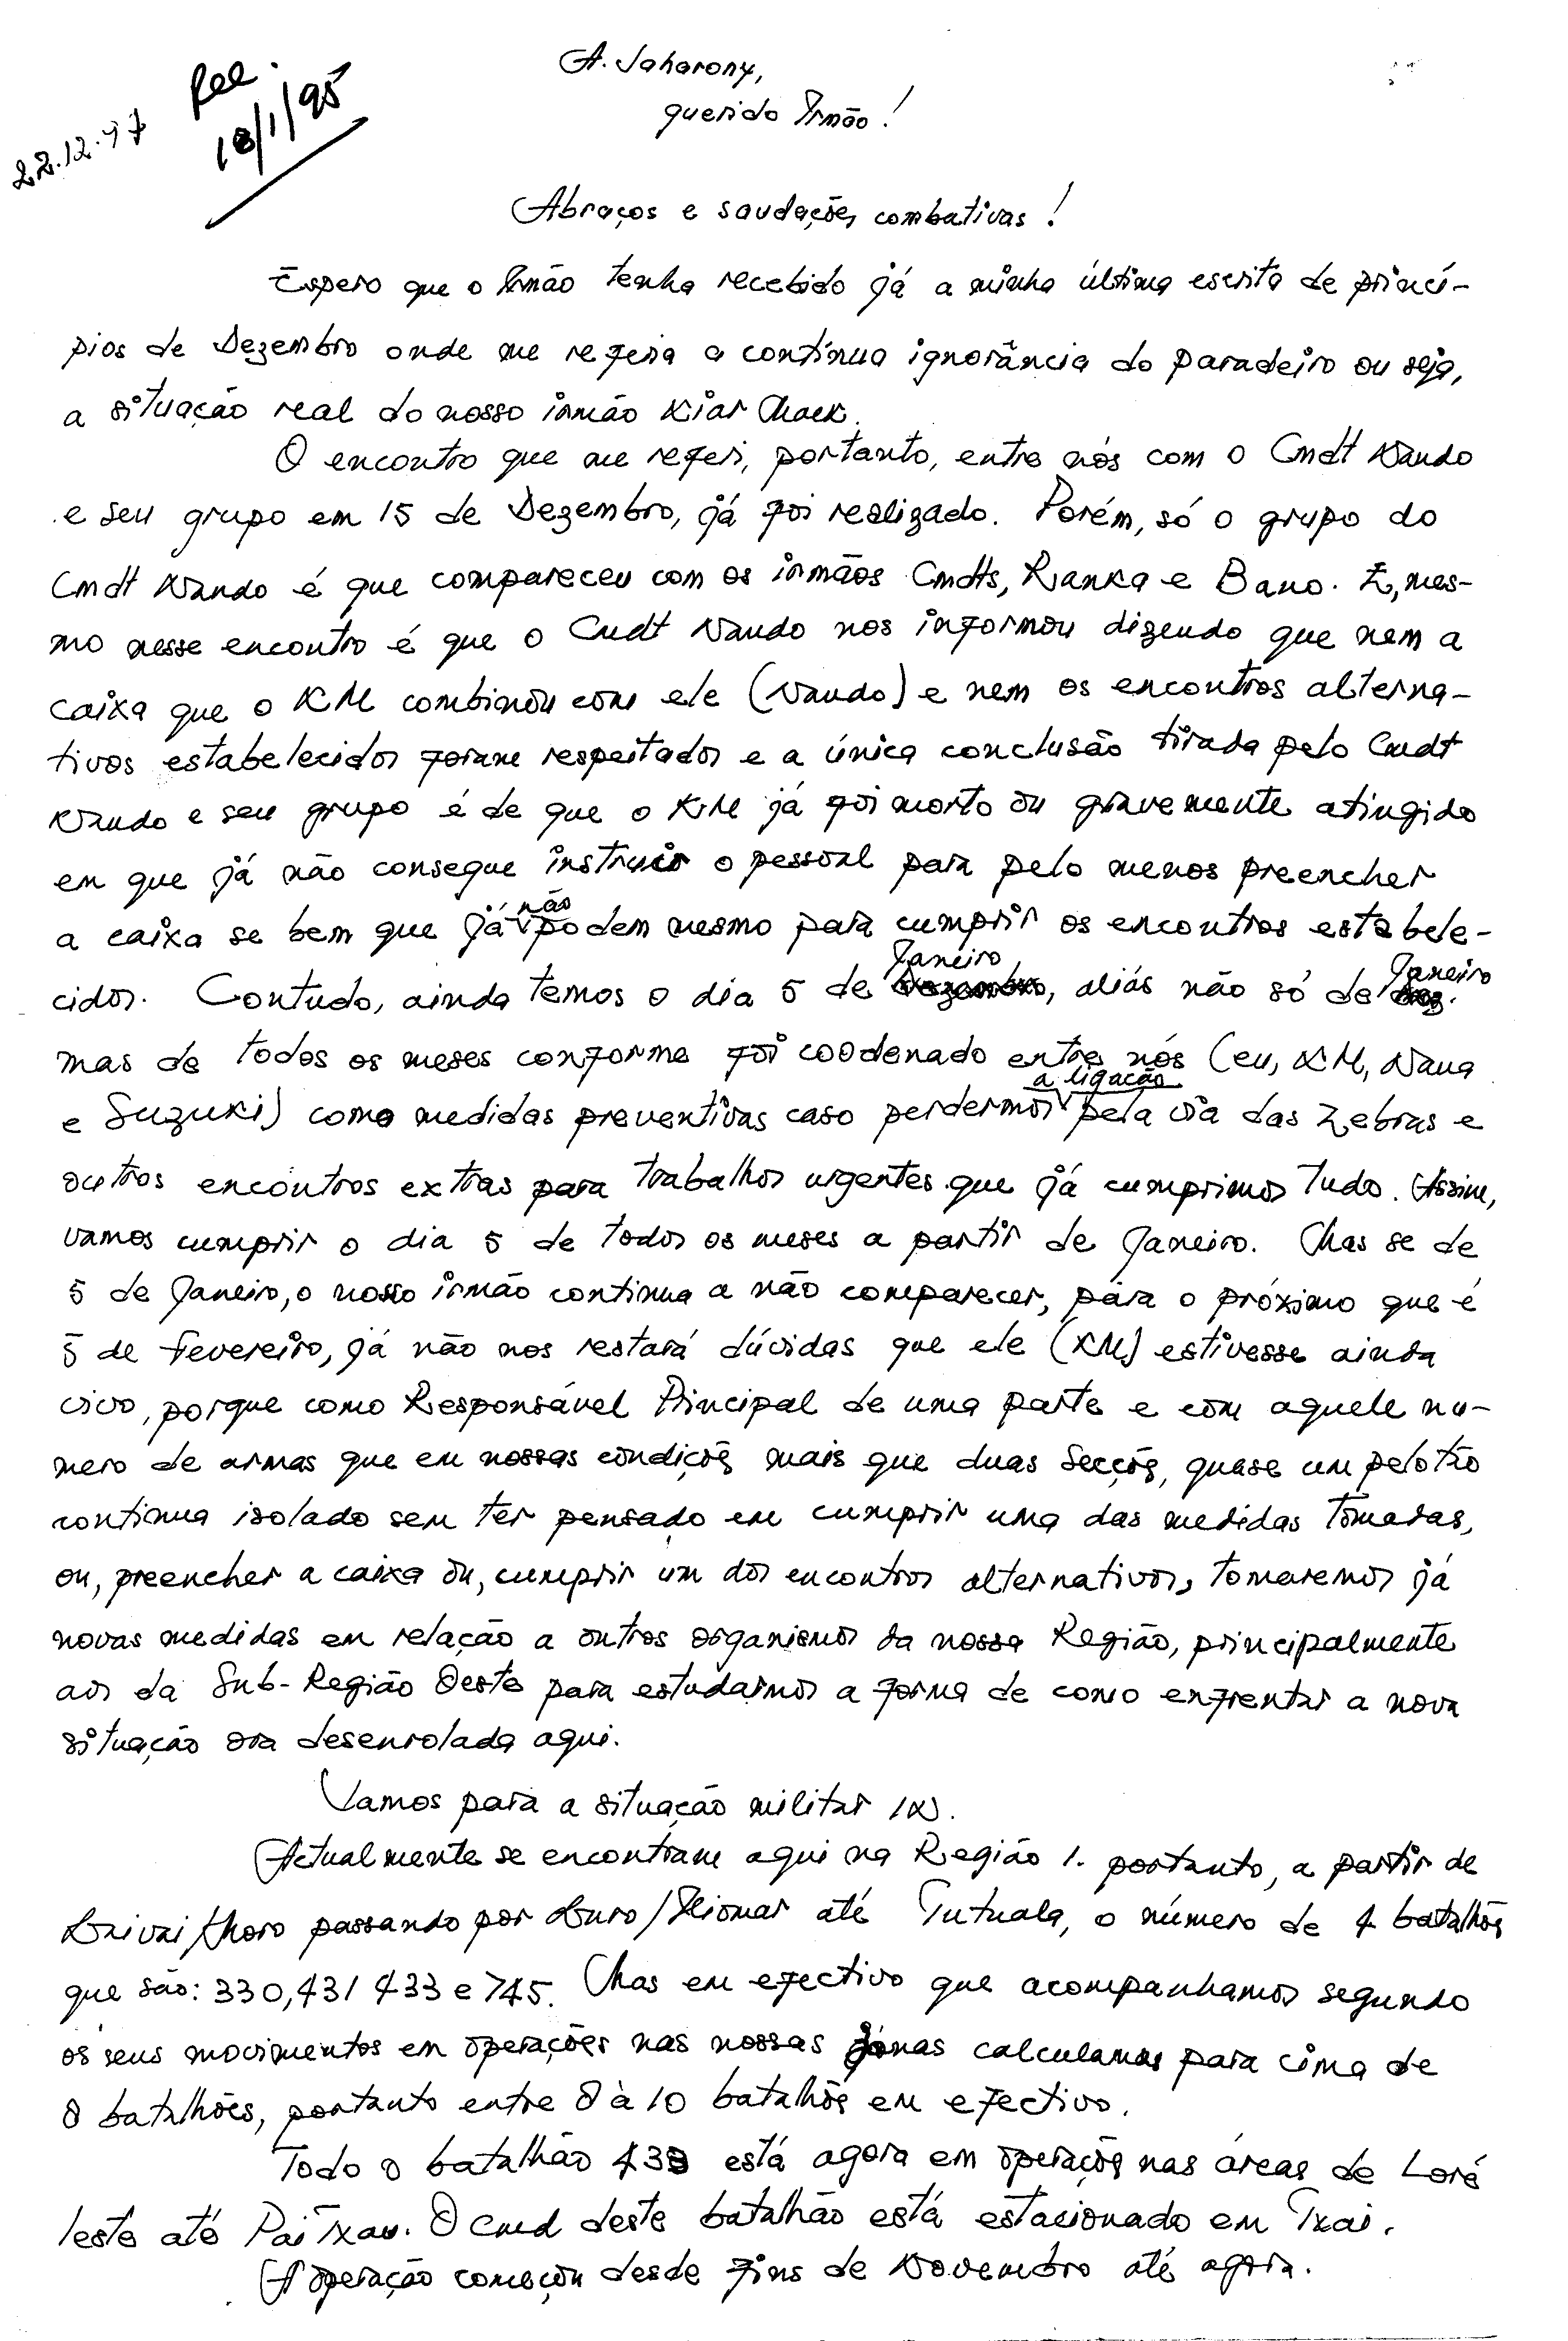 A. Jaharony,
querido Irmão!
22.12.97
Rec.
18/1/95
Abraços e saudações combativas!
Espero que o Irmão tenha recebido já a minha última escrita de princí-
pios de Dezembro onde me referia a contínua ignorância do paradeiro ou seja,
a situação real do nosso irmão Kiar Mack.
O encontro que me referi, portanto, entre nós com o Cmdt Nando
e seu grupo em 15 de Dezembro, já foi realizado. Porém, só o grupo do
Cmdt Nando é que compareceu com os irmãos Cmdts, Ranka e Bano. E, mes-
mo nesse encontro é que o Cmdt Nando nos informou dizendo que nem a
caixa que o KM combinou com ele (Nando) e nem os encontros alterna-
tivos estabelecidos foram respeitados e a única conclusão tirada pelo Cmdt
Nando e seu grupo é de que o KM já foi morto ou gravemente atingido
em que já não consegue instruir o pessoal para pelo menos preencher
a caixa se bem que já não podem mesmo para cumprir os encontros estabele-
cidos. Contudo, ainda temos o dia 5 de Janeiro, aliás não só de Janeiro
mas de todos os meses conforme foi coodenado entre nós (eu, KM, Nana
e Suzuki) como medidas preventivas caso perdermos a ligação pela via das Zebras e
outros encontros extras para trabalhos urgentes que já cumprimos tudo. Assim,
vamos cumprir o dia 5 de todos os meses a partir de Janeiro. Mas se de
5 de Janeiro, o nosso irmão continua a não comparecer, para o próximo que é
5 de Fevereiro, já não nos restará dúvidas que ele (KM) estivesse ainda
vivo, porque como Responsável Principal de uma parte e com aquele nú-
mero de armas que em nossas condições mais que duas Secções, quase um pelotão
continua isolado sem ter pensado em cumprir uma das medidas tomadas,
ou, preencher a caixa ou, cumprir um dos encontros alternativos, tomaremos já
novas medidas em relação a outros organismos da nossa Região, principalmente
aos da Sub-Região Oeste para estudarmos a forma de como enfrentar a nova
situação ora desenrolada aqui.
Vamos para a situação militar IN.
Actualmente se encontram aqui na Região 1. portanto, a partir de
Laivai/Moro passando por Luro/Iliomar até Tutuala, o número de 4 batalhões
que são: 330, 431 433 e 745. Mas em efectivo que acompanhamos segundo
os seus movimentos em operações nas nossas zonas calculamos para cima de
8 batalhões, portanto entre 8 à 10 batalhões em efectivo.
Todo o batalhão 433 está agora em operações nas áreas de Loré
leste até Paitxau. O Cmd deste batalhão está estacionado em Txai.
A operação começou desde fins de Novembro até agora.